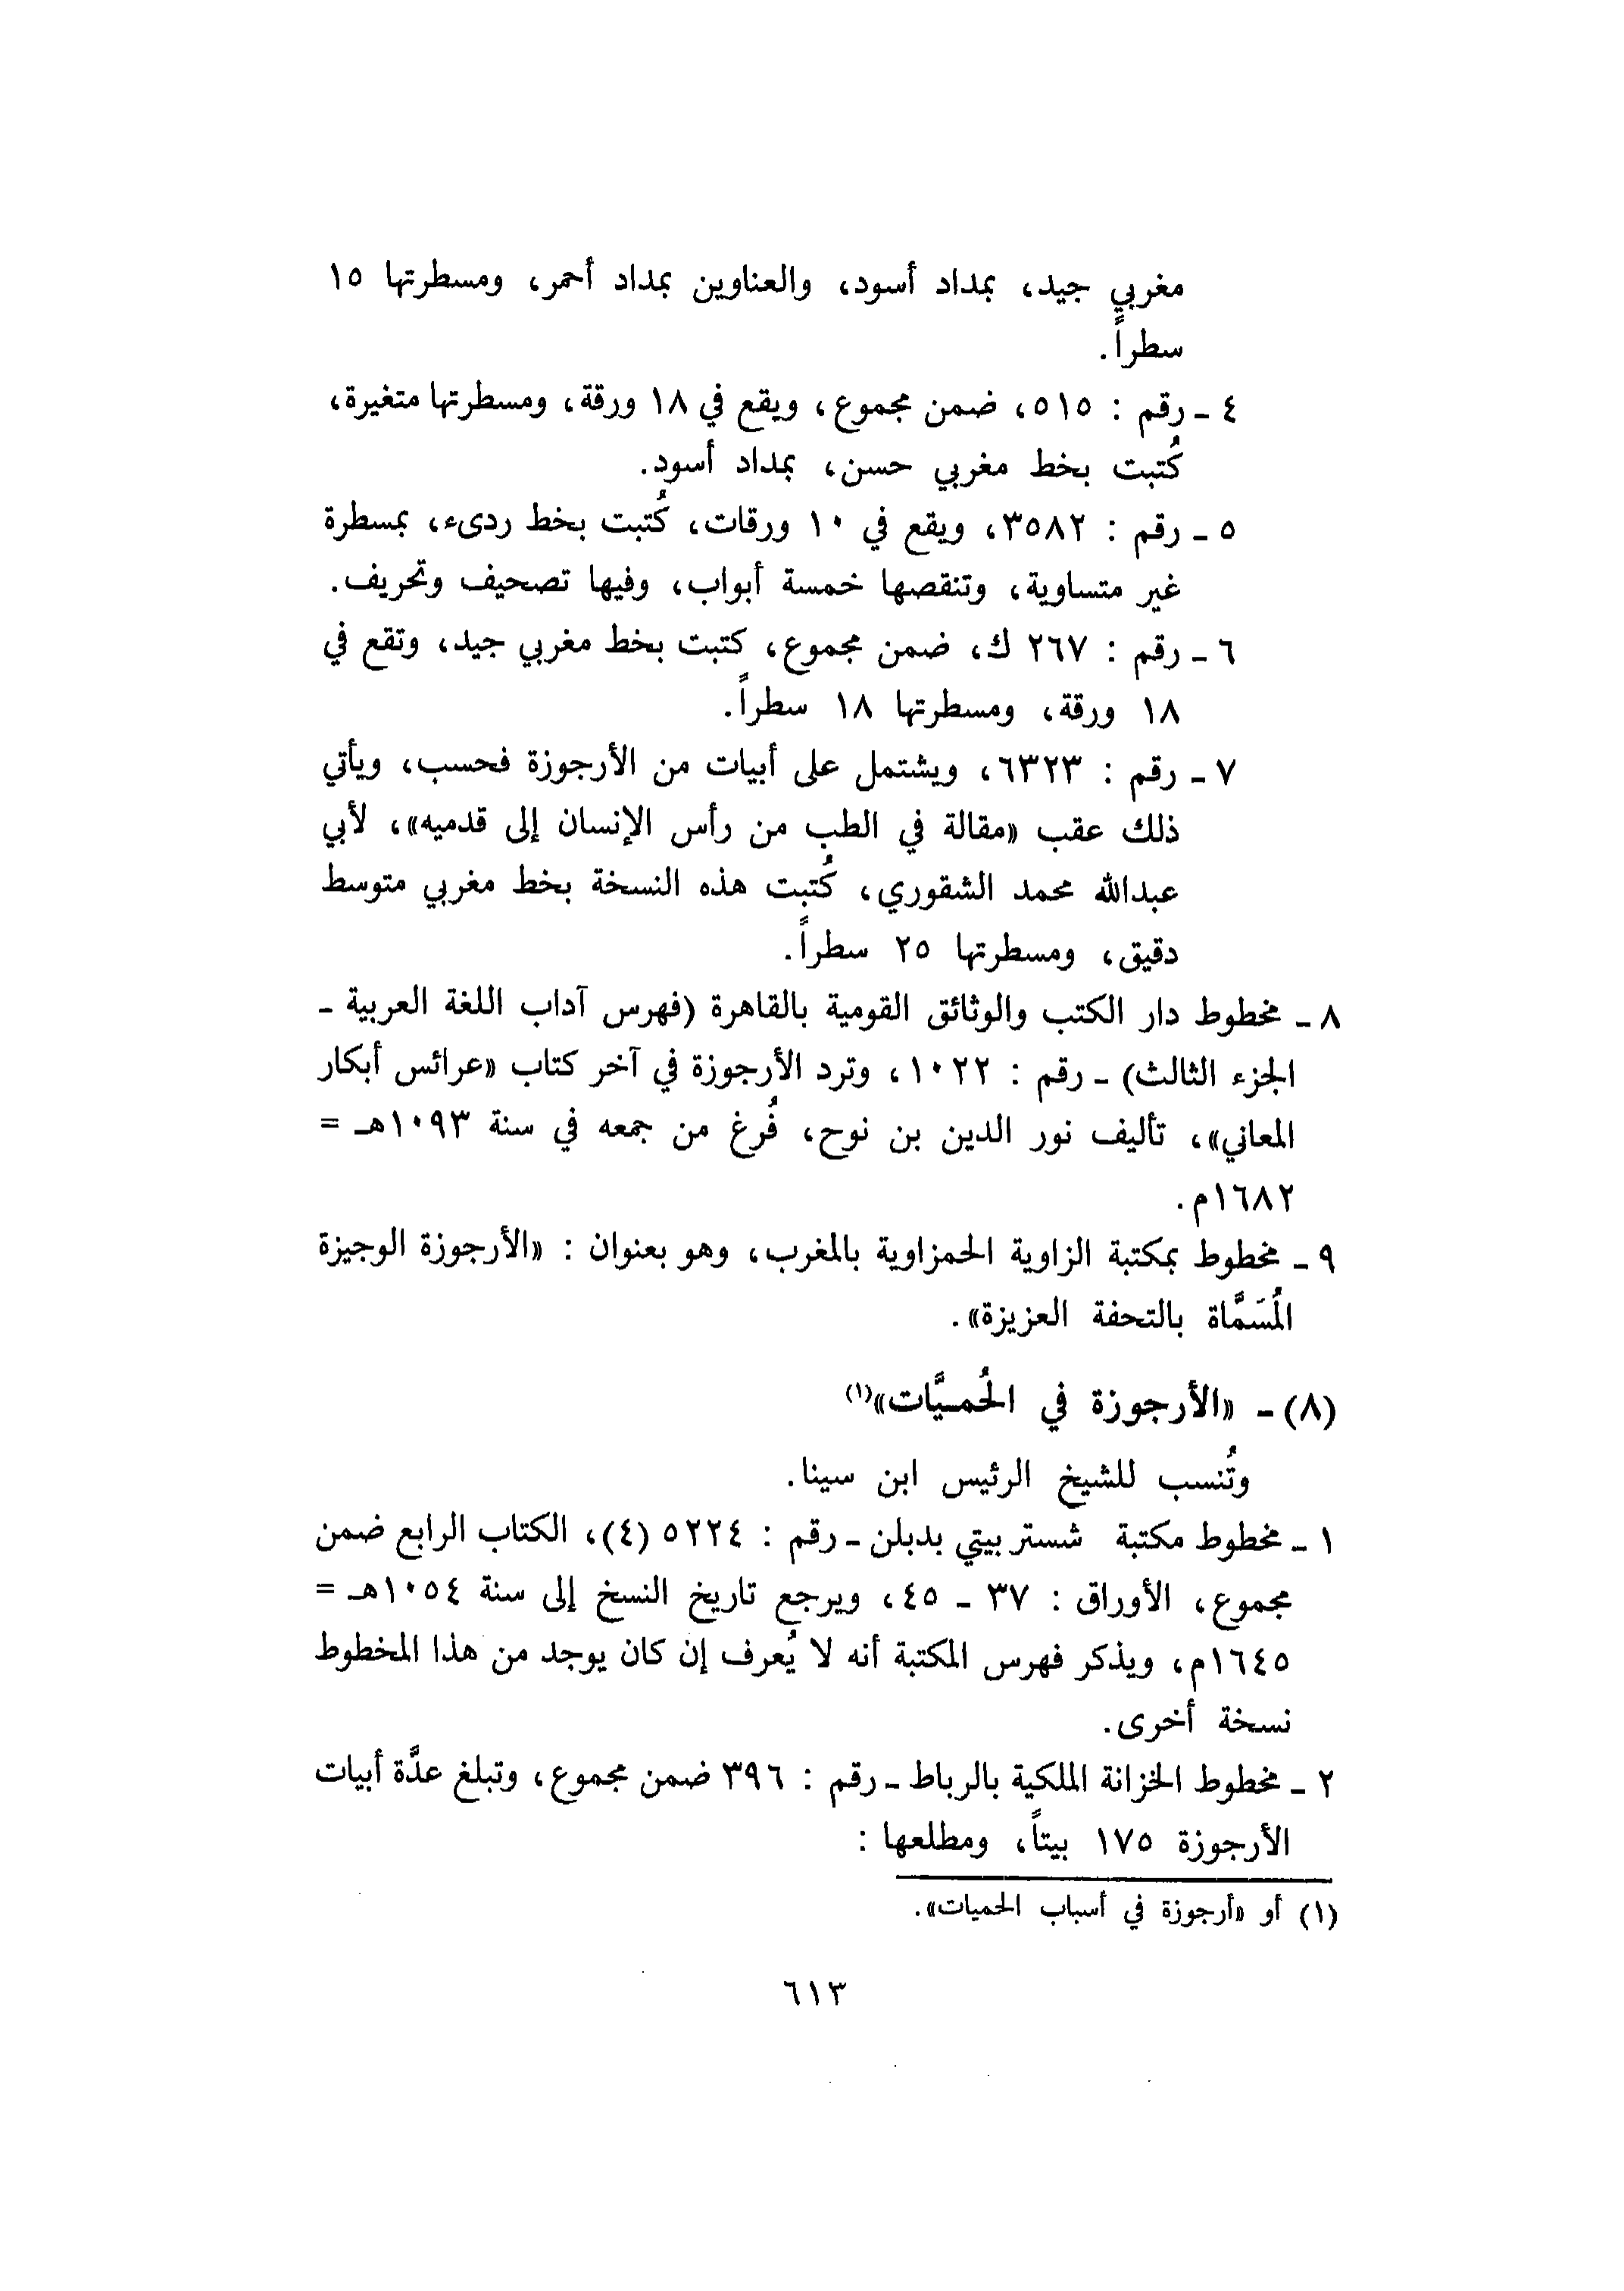 مغربي جيد، بمداد أسود، والعناوين بمداد أحمر، ومسطرتها ١٥
سطراً.
٤ ـ رقم : ٥١٥، ضمن مجموع، ويقع في ١٨ ورقة، ومسطرتها متغيرة،
كُتبت بخط مغربي حسن، بمداد أسود.
٥ ـ رقم : ٣٥٨٢، ويقع في ١٠ ورقات، كُتبت بخط ردىء، بمسطرة
غير متساوية، وتنقصها خمسة أبواب، وفيها تصحيف وتحريف.
٦ ـ رقم : ٢٦٧ ك، ضمن مجموع، كتبت بخط مغربي جيد، وتقع في
١٨ ورقة، ومسطرتها ١٨ سطراً.
٧ ـ رقم : ٦٣٢٣، ويشتمل على أبيات من الأرجوزة فحسب، ويأتي
ذلك عقب «مقالة في الطب من رأس الإنسان إلى قدميه»، لأبي
عبدالله محمد الشقوري، كُتبت هذه النسخة بخط مغربي متوسط
دقيق، ومسطرتها ٢٥ سطراً.
٨ ـ مخطوط دار الكتب والوثائق القومية بالقاهرة (فهرس آداب اللغة العربية ـ
الجزء الثالث) ـ رقم : ١٠٢٢، وترد الأرجوزة في آخر كتاب «عرائس أبكار
المعاني»، تأليف نور الدين بن نوح، فُرغ من جمعه في سنة ١٠٩٣هـ =
١٦٨٢م.
٩ ـ مخطوط بمكتبة الزاوية الحمزاوية بالمغرب، وهو بعنوان : «الأرجوزة الوجيزة
المُسَمَّاة بالتحفة العزيزة».
(٨) ـ «الأرجوزة في الحُميَّات»(١)
وتُنسب للشيخ الرئيس ابن سينا.
١ ـ مخطوط مكتبة شستر بيتي بدبلن ـ رقم : ٥٢٢٤ (٤)، الكتاب الرابع ضمن
مجموع، الأوراق : ٣٧ ـ ٤٥، ويرجع تاريخ النسخ إلى سنة ١٠٥٤هـ =
١٦٤٥م، ويذكر فهرس المكتبة أنه لا يُعرف إن كان يوجد من هذا المخطوط
نسخة أخرى.
٢ ـ مخطوط الخزانة الملكية بالرباط ـ رقم : ٣٩٦ ضمن مجموع، وتبلغ عدَّة أبيات
الأرجوزة ١٧٥ بيتاً، ومطلعها :
(١) أو «أرجوزة في أسباب الحميات».
٦١٣